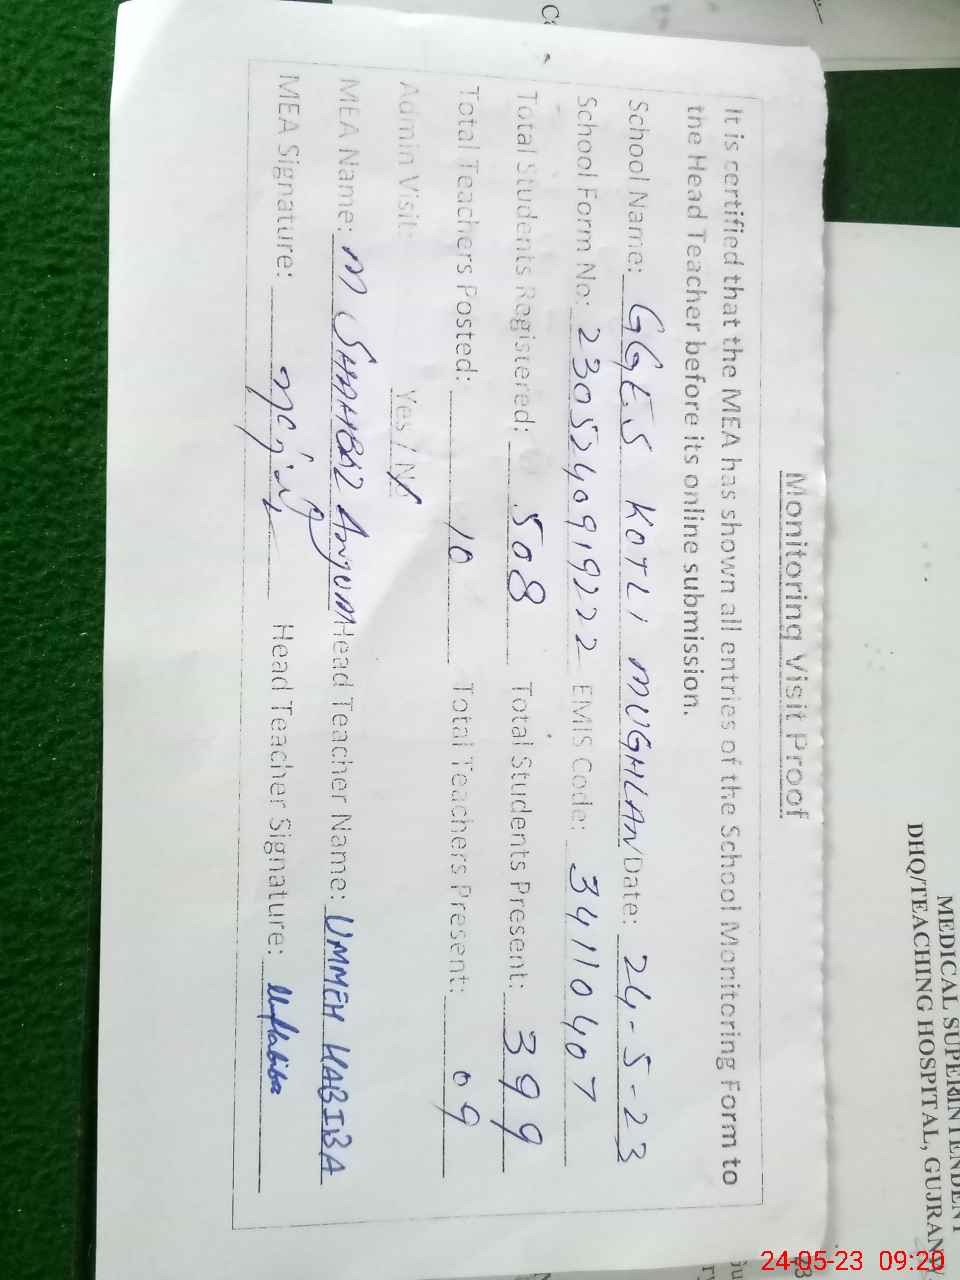 Monitoring Visit Proof
It is certified that the MEA has shown all entries of the School Monitoring Form to
the Head Teacher before its online submission.
School Name: GGES KOTLI MUGHLAN Date: 24-5-23
School Form No: 2305240919222 EMIS Code: 34111040407
Total Students Registered: 508 Total Students Present: 399
Total Teachers Posted: 10 Total Teachers Present: 09
Admin Visit: Yes / No
MEA Name: M SHAHBAZ Anjum Head Teacher Name: UMMEH HABIBA
MEA Signature: Head Teacher Signature: UmHabiba
MEDICAL SUPERINTENDENT
DHQ/TEACHING HOSPITAL, GUJRANW
24-05-23 09:20